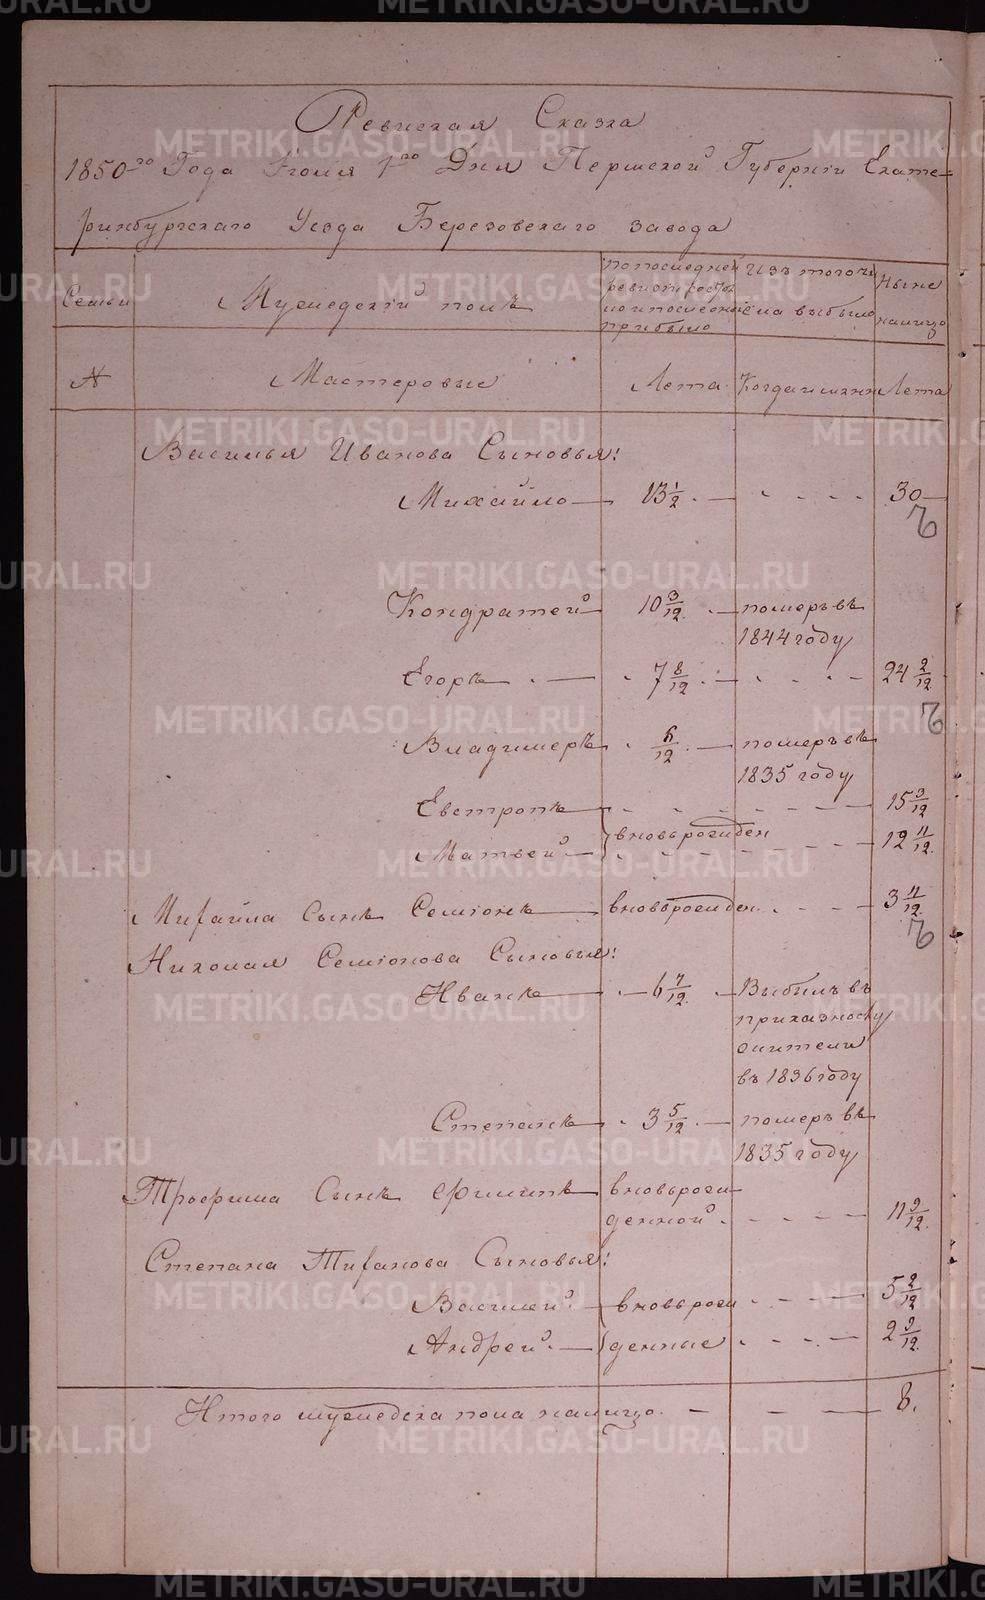 Ревиская Сказка
1850го Года Июля 1го Дня Пермской Губернiи Екате-
ринбургскаго Уезда Березовскаго завода
Семьи
Мужедскiй полъ
по последней
ревизiи
прибыло
Изъ того чи
сла выбыло
Ныне
налицо
№
Мастеровые
Лета
Когда имянно
Лета
Василья Иванова Сыновья:
Михайло 13 1/2 30
Кондратей 10 3/12 померъ въ
1844 году
Егоръ 7 8/12 24 2/12
Владимеръ 6/12 померъ въ
1835 году
Евстропъ 15 3/12
вновьрожден
Матвей 12 11/12
Михайла Сынъ Семiонъ вновьрожден 3 11/12
Николая Семiонова Сыновья:
Иванъ 6 7/12 Выбылъ въ
въ 1836 году
Степанъ 3 5/12 померъ въ
1835 году
Трофима Сынъ Филипъ вновьрож
денной 11 9/12
Степана Тифанова Сыновья:
Василей вновьрож 5 2/12
Андрей денные 2 9/12
Итого мужедска пола налицо 8.
METRIKI.GASO-URAL.RU